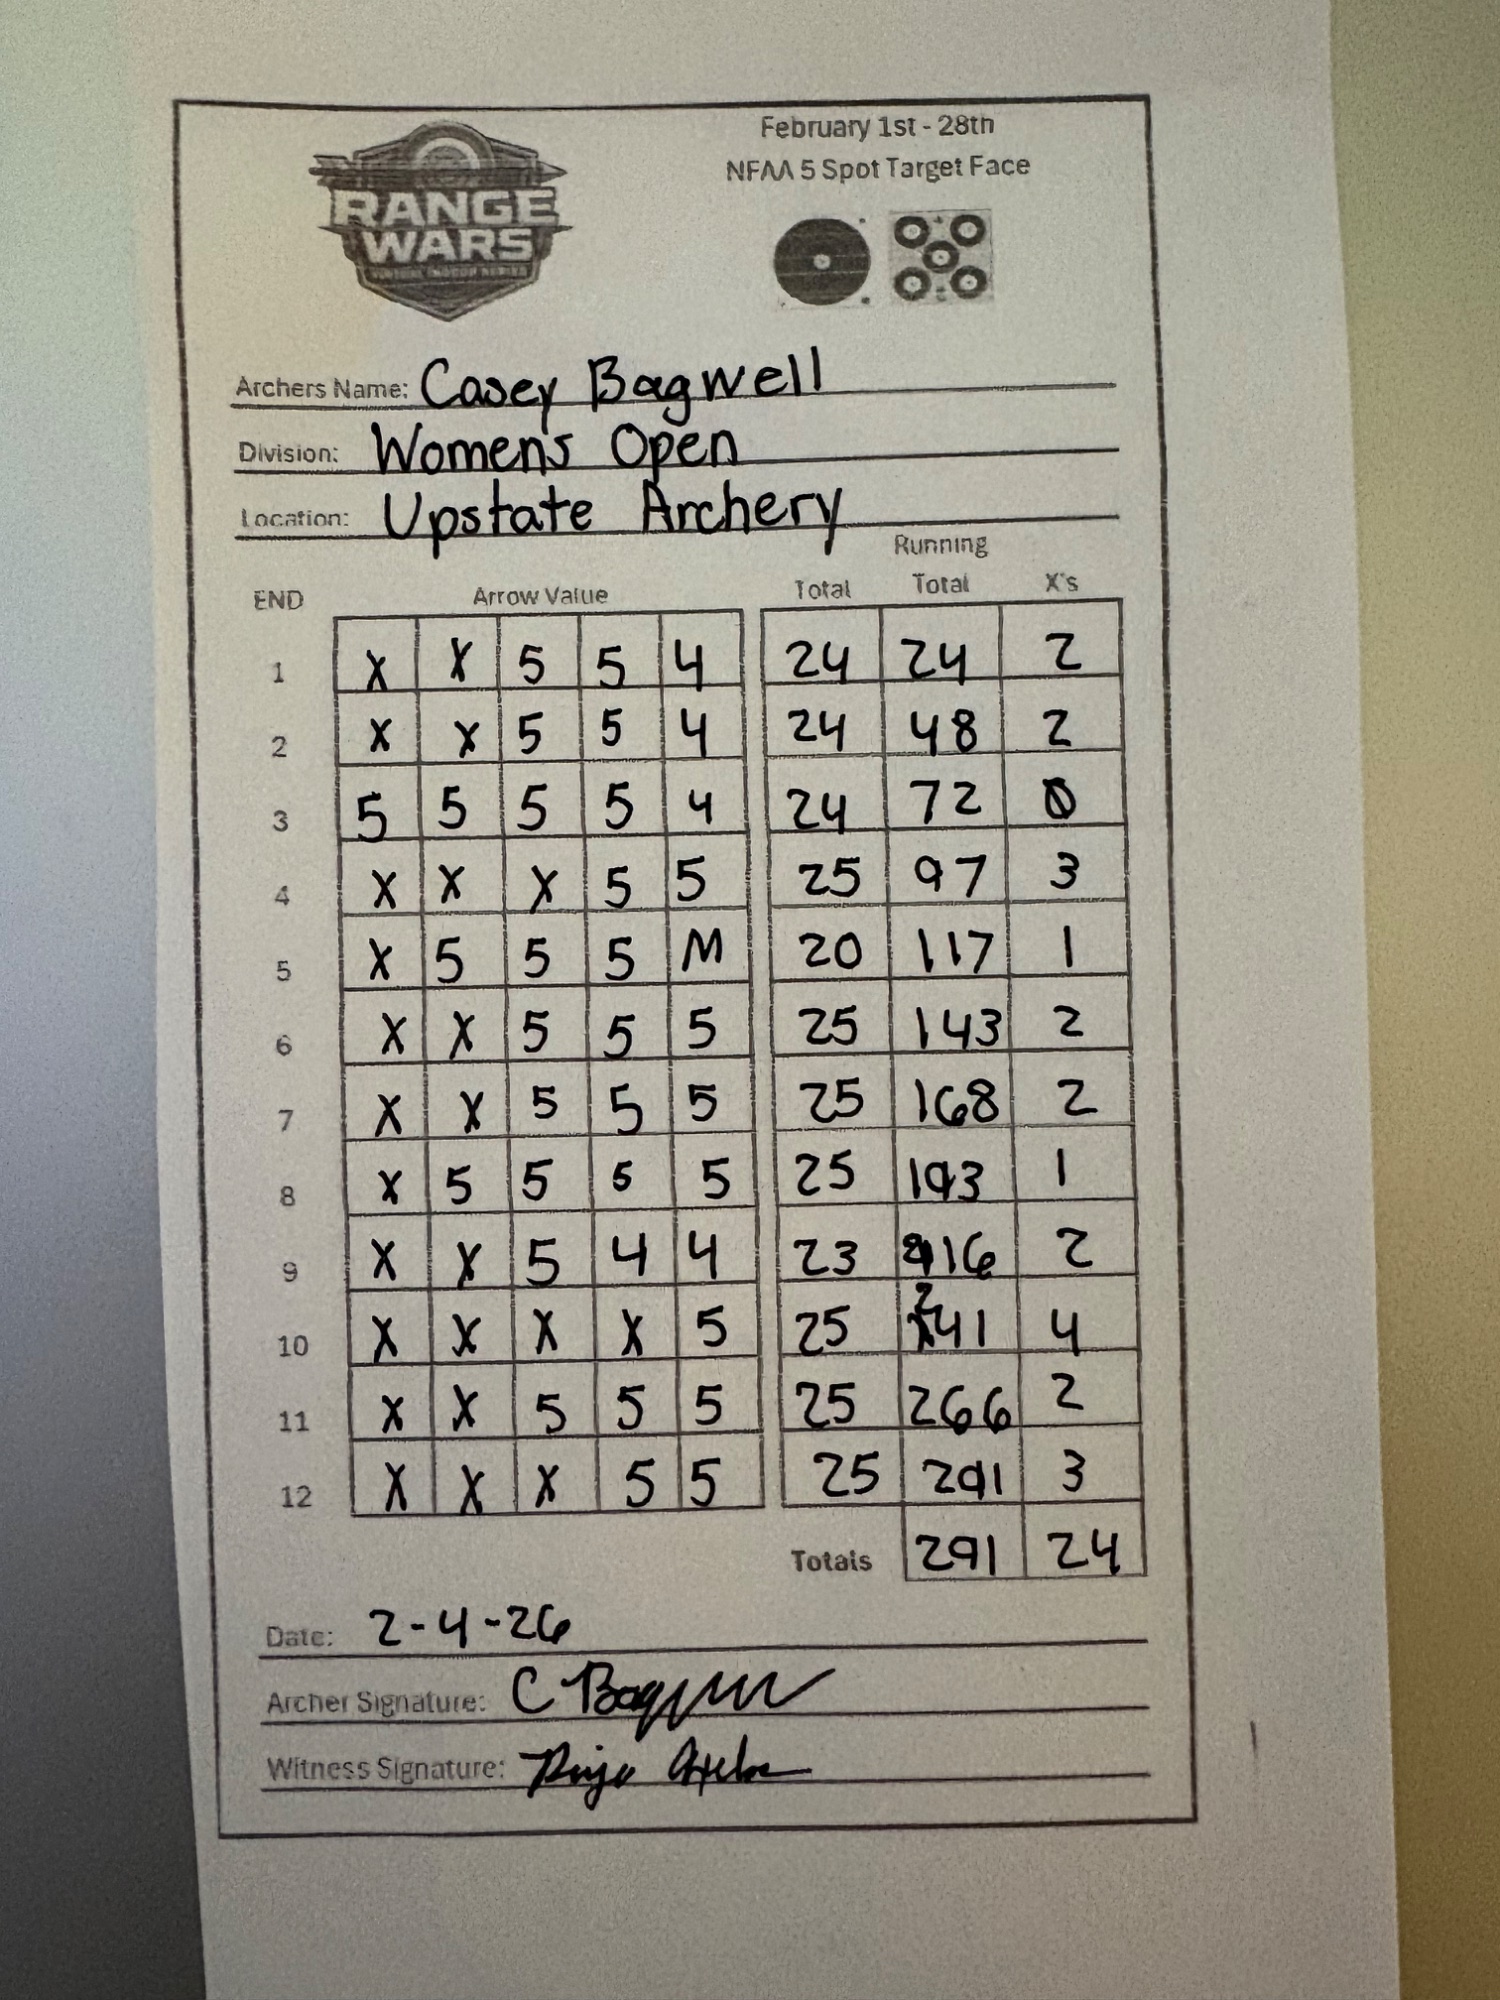 February 1st - 28th
NFAA 5 Spot Target Face
RANGE
WARS
VIRTUAL INDOOR SERIES
Archers Name: Casey Bagwell
Division: Womens Open
Location: Upstate Archery
END Arrow Value Total Running Total X's
1 X X 5 5 4 24 24 2
2 X X 5 5 4 24 48 2
3 5 5 5 5 4 24 72 0
4 X X X 5 5 25 97 3
5 X 5 5 5 M 20 117 1
6 X X 5 5 5 25 143 2
7 X X 5 5 5 25 168 2
8 X 5 5 5 5 25 193 1
9 X X 5 4 4 23 216 2
10 X X X X 5 25 241 4
11 X X 5 5 5 25 266 2
12 X X X 5 5 25 291 3
Totals 291 24
Date: 2-4-26
Archer Signature: C Bagwell
Witness Signature: